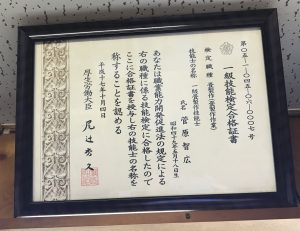 第〇五-一-〇四五-〇六-〇〇〇七号
一級技能検定合格証書
検定職種 畳製作(畳製作作業)
技能士の名称 一級畳製作技能士
氏名 菅原智広
昭和四十九年五月十八日生
あなたは職業能力開発促進法の規定による
右の職種に係る技能検定に合格したので
ここに合格証書を授与し右の技能士の名称を
称することを認める
平成十七年十月四日
厚生労働大臣 尾辻秀久